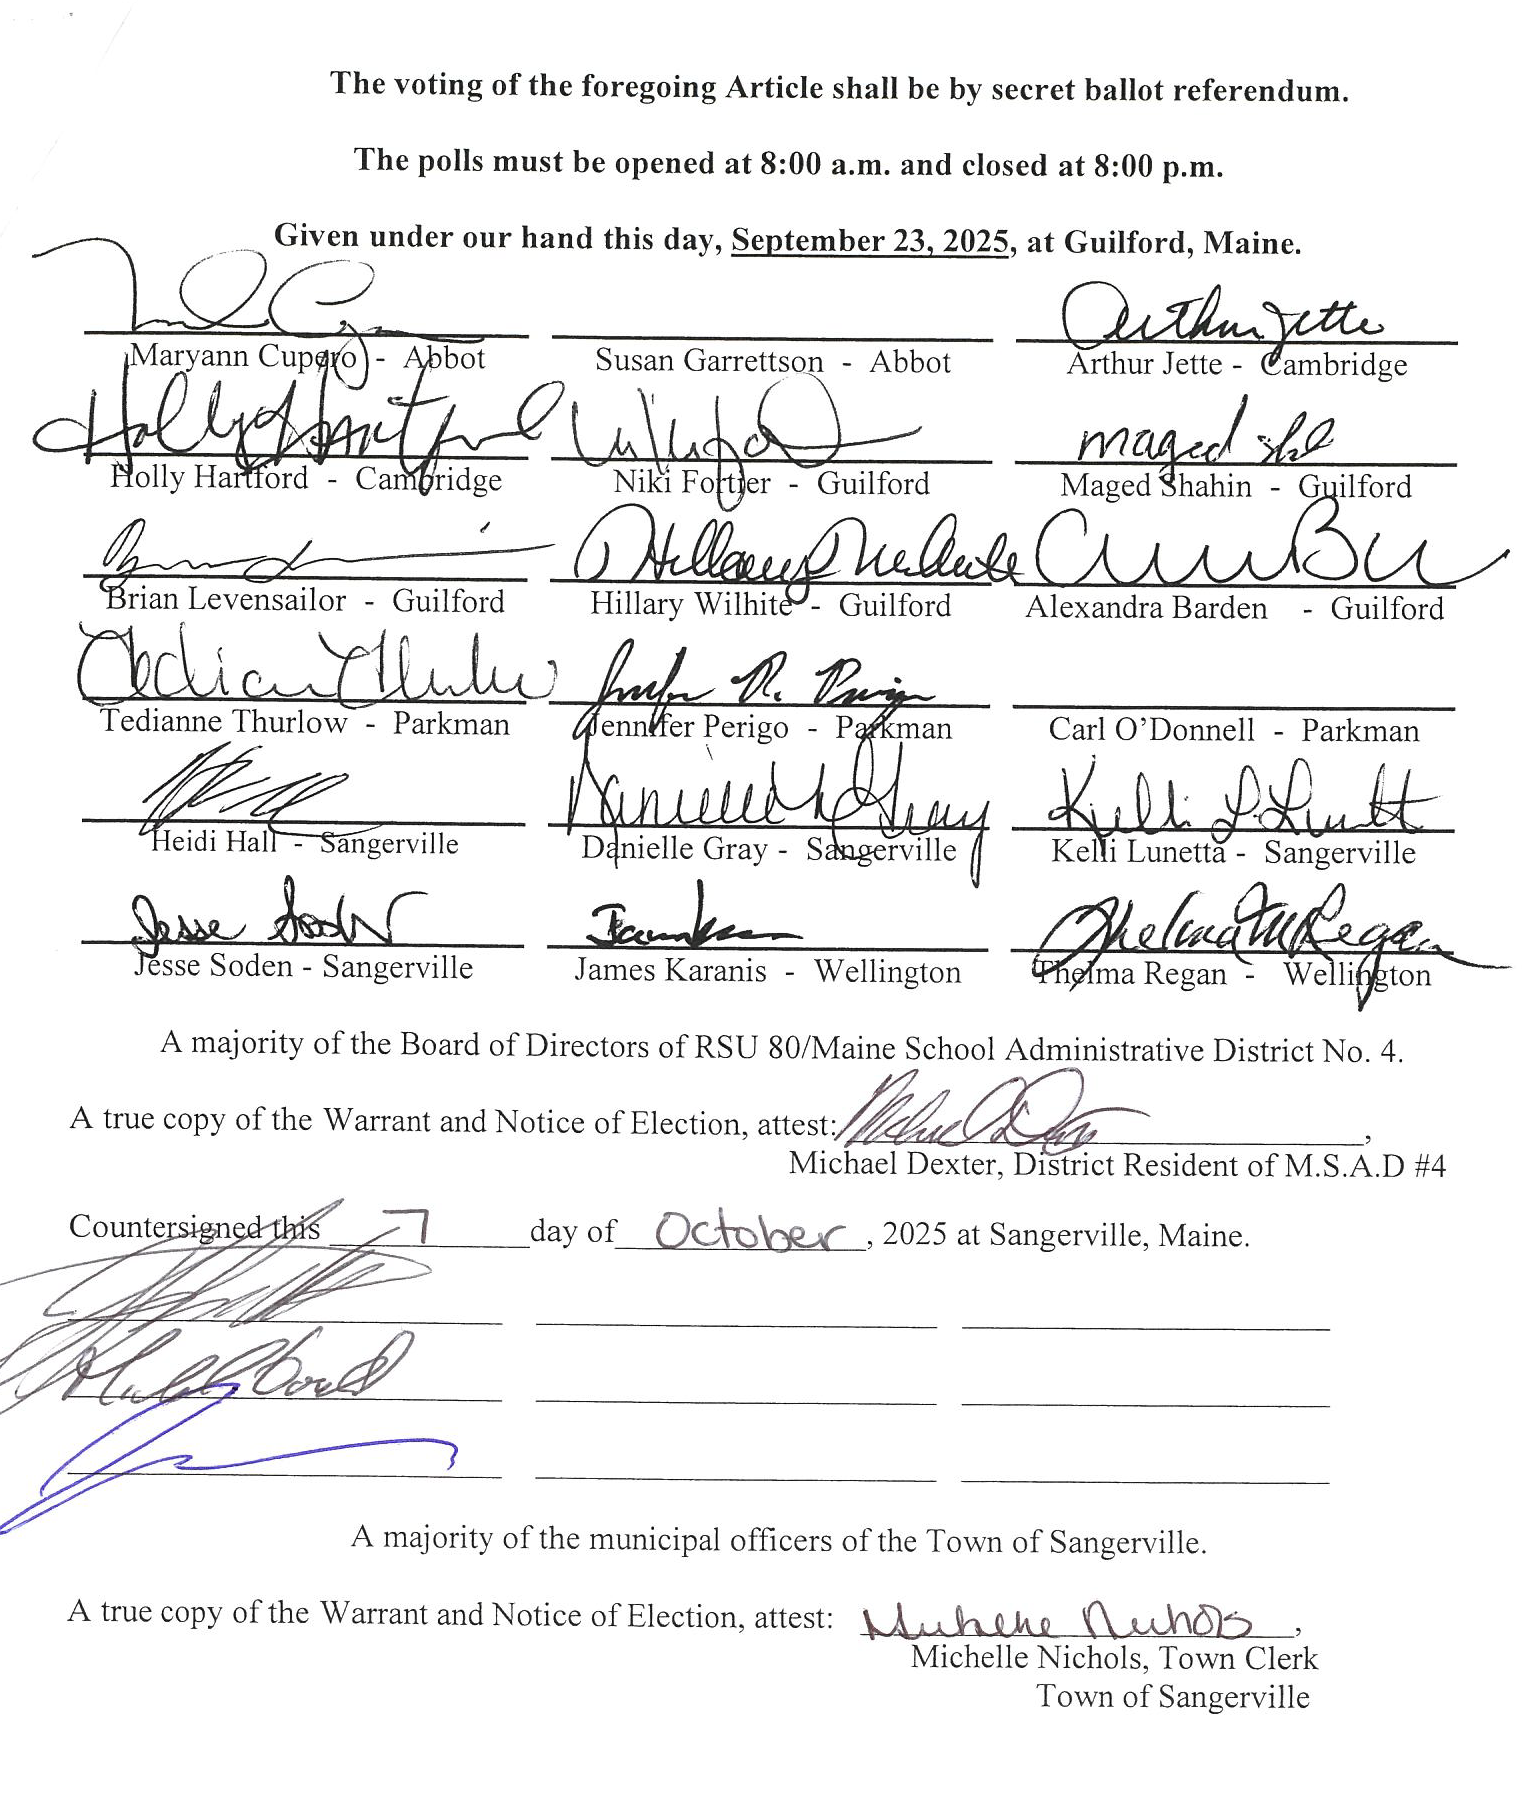 The voting of the foregoing Article shall be by secret ballot referendum.
The polls must be opened at 8:00 a.m. and closed at 8:00 p.m.
Given under our hand this day, September 23, 2025, at Guilford, Maine.
Arthur Jette
Maryann Cupero - Abbot Susan Garrettson - Abbot Arthur Jette - Cambridge
Holly Hartford maged
Holly Hartford - Cambridge Niki Fortier - Guilford Maged Shahin - Guilford
Hillary
Brian Levensailor - Guilford Hillary Wilhite - Guilford Alexandra Barden - Guilford
Tedianne Thurlow - Parkman Jennifer Perigo - Parkman Carl O'Donnell - Parkman
Danielle Gray Kelli
Heidi Hall - Sangerville Danielle Gray - Sangerville Kelli Lunetta - Sangerville
Jesse Soden Thelma M Regan
Jesse Soden - Sangerville James Karanis - Wellington Thelma Regan - Wellington
A majority of the Board of Directors of RSU 80/Maine School Administrative District No. 4.
A true copy of the Warrant and Notice of Election, attest: ,
Michael Dexter, District Resident of M.S.A.D #4
Countersigned this 7 day of October, 2025 at Sangerville, Maine.
A majority of the municipal officers of the Town of Sangerville.
A true copy of the Warrant and Notice of Election, attest: Michelle Nichols,
Michelle Nichols, Town Clerk
Town of Sangerville